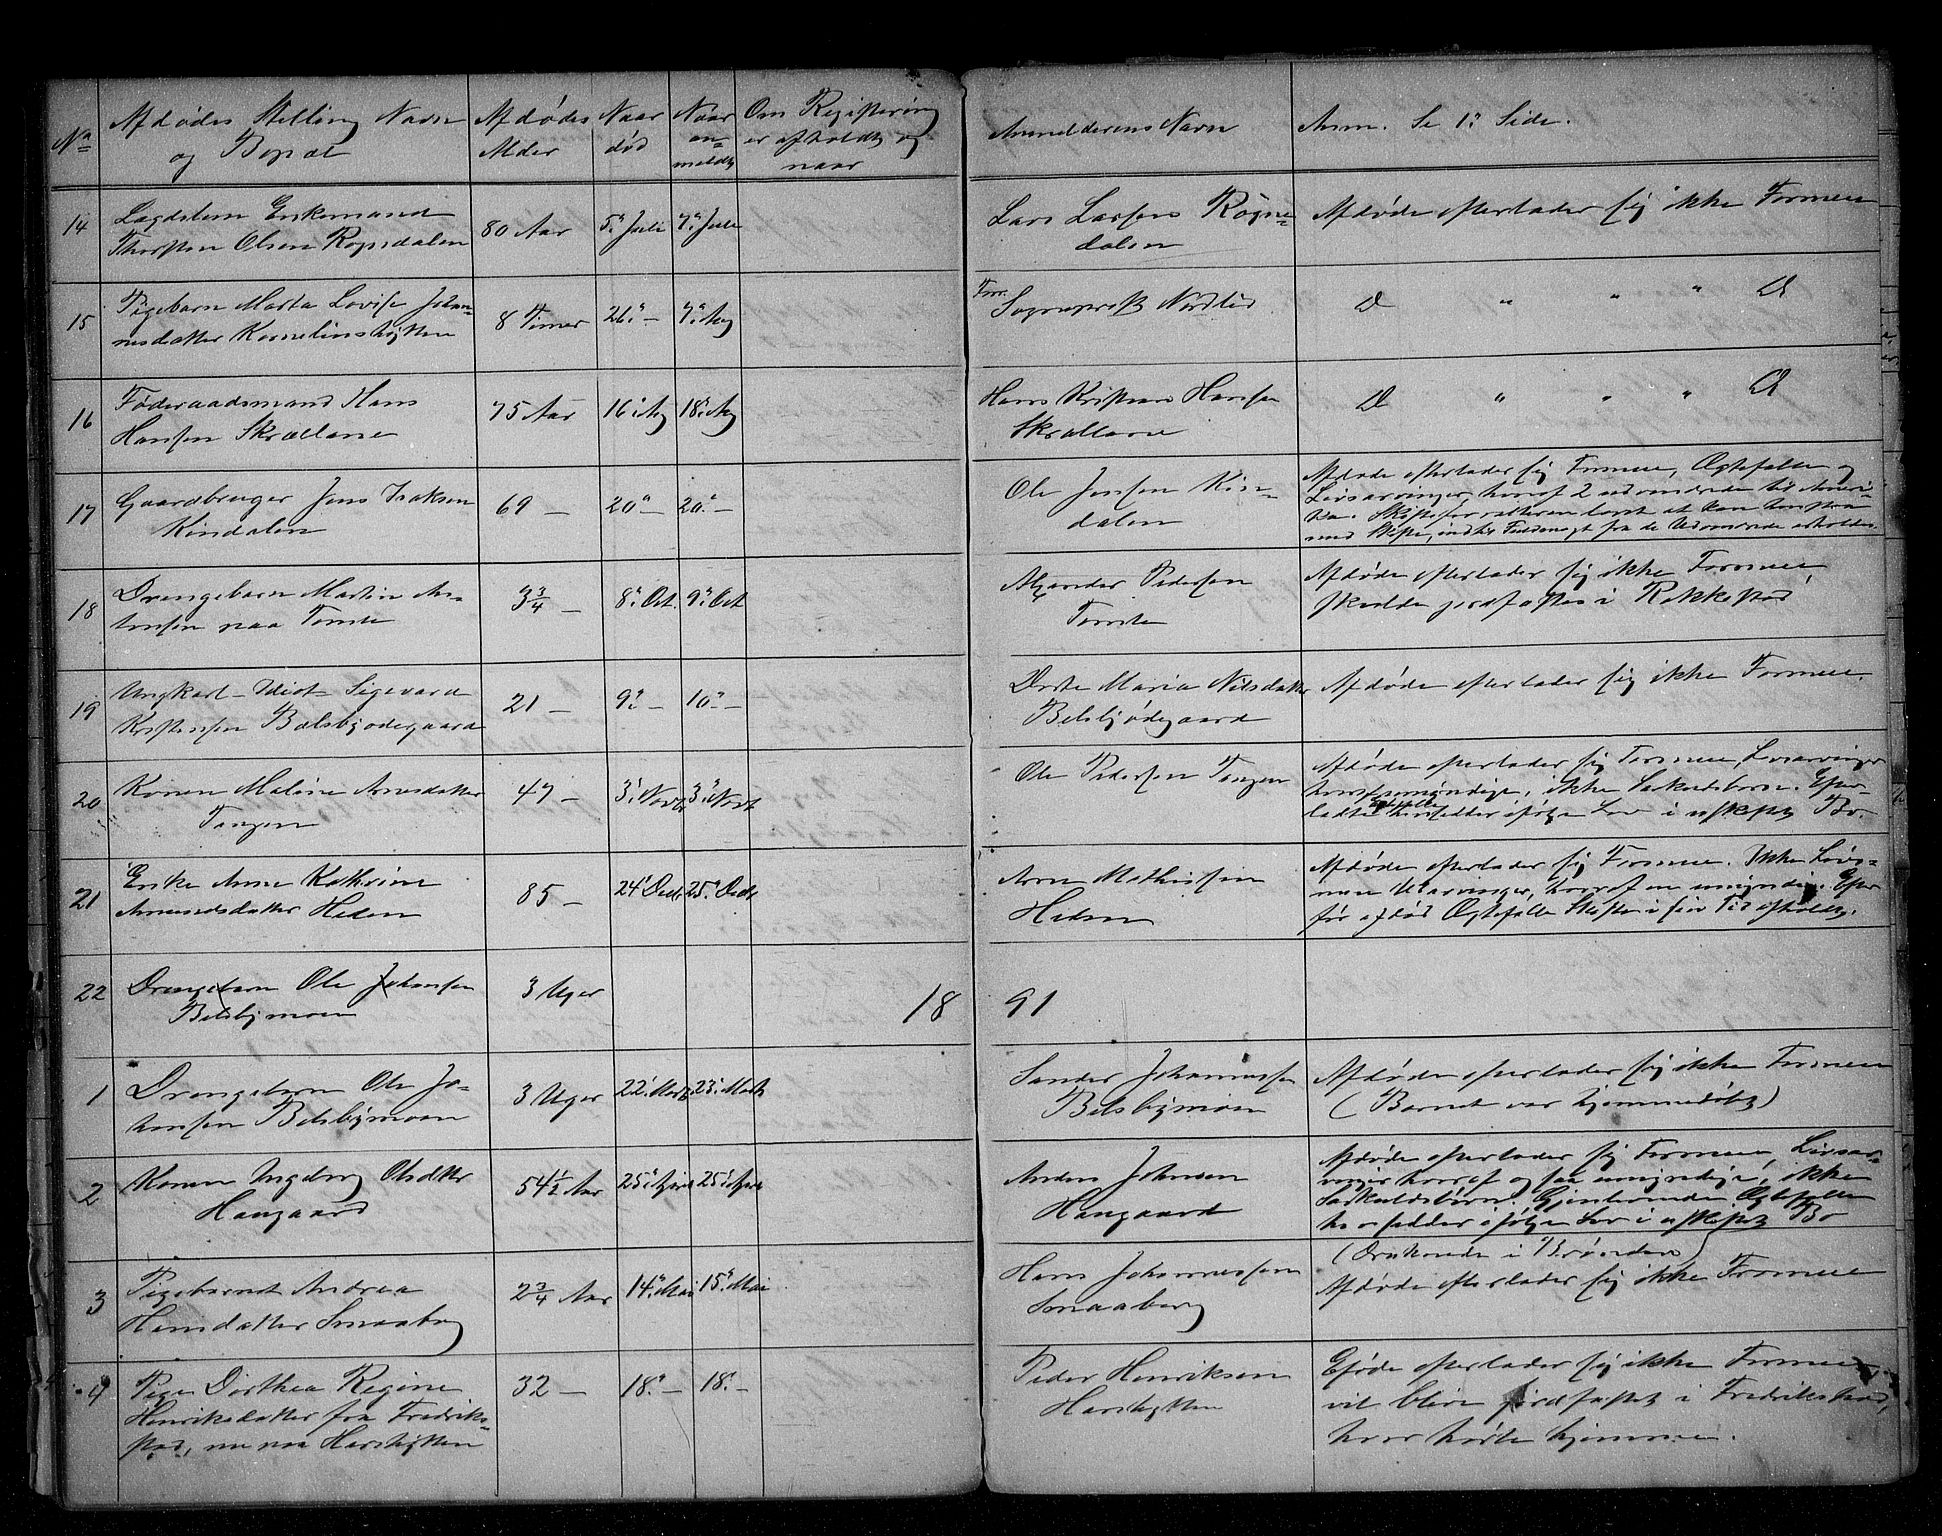 No
Afdødes Stilling Navn
og Bopæl
Afdødes
Alder
Naar
død
Naar
an=
meldt
Om Registrering
er afholdt og
naar
Anmelderens Navn
Anm. Se 1ᵉ Side.
14
Lægdslem Enkemand
Thorsten Olsen Rognedalen
80 Aar
5. Juli
7. Juli
Lars Larsen Rogne=
dalen
Afdøde efterlader sig ikke Formue
15
Pigebarn Marta Lovise Johan=
nesdatter Kornelinshytten
8 Timer
26. —
7. Aug
For Sogneprest Nordlid
D " " " D
16
Føderaadsmand Hans
Hansen Skrællane
75 Aar
16. Aug
18. Aug
Hans Kristian Hansen
Skrællane
D " " " D
17
Gaardbruger Jens Isaksen
Kindalen
69 —
20 —
20. —
Ole Jensen Kin=
dalen
Afdøde efterlader sig Formue, Ægtefælle og
Livsarvinger, hvoraf 2 udvandrede til Ameri=
ka. Skifteforvalteren lovet at kan henstaa
med Skifte, indtil Fuldmagt fra de Udvandrede erholdes.
18
Drengebarn Martin An=
tonsen paa Tomte
3 3/4 —
8. Oct.
9. Oct
Alexander Pedersen
Tomte
Afdøde efterlader sig ikke Formue
skulde jordfæstes i Rakkestad
19
Ungkarl Idiot Sigevard
Kristensen Bælsbyødegaard
21 —
9. —
10. —
Dorte Maria Nilsdatter
Belsbyødegaard
Afdøde efterlader sig ikke Formue.
20
Konen Maline Arnesdatter
Tangen
47 —
3. Novb
3. Novb
Ole Pedersen Tangen
Afdøde efterlader sig Formue, Livsarvinger
hvoraf umyndige, ikke Særkuldsbørn. Efter=
ladte Ægtefælle hensidder ifølge Lov i uskiftet Bo.
21
Enke Anne Kathrine
Amundsdatter Heden
85 —
24. Decb
25. Decb
Arne Mathissen
Heden
Afdøde efterlader sig Formue. Ikke Livs=
men Udarvinger, hvoraf en umyndig. Efter
før afdød Ægtefælle Skifte i sin Tid afholdt.
22
Drengebarn Ole Johansen
Belsbymoen
3 Uger
18 91
1
Drengebarn Ole Jo=
hansen Belsbymoen
3 Uger
22. Marts
23. Marts
Sander Johannessen
Belsbymoen
Afdøde efterlader sig ikke Formue
( Barnet var hjemmedøbt )
2
Konen Ingeborg Olsdatter
Haugaard
54 1/2 Aar
25. April
25. April
Anders Johansen
Haugaard
Afdøde efterlader sig Formue, Livsar=
vinger hvoraf ogsaa umyndige, ikke
Særkuldsbørn. Gjenlevende Ægtefælle
hensidder ifølge Lov i uskiftet Bo
3
Pigebarnet Andrea
Hansdatter Smaaberg
2 3/4 Aar
14. Mai
15. Mai
Hans Johannessen
Smaaberg
( Druknede i Brønden )
Afdøde efterlader sig ikke Formue
4
Pige Dorthea Regine
Henriksdatter fra Fredriks=
stad, nu paa Harehytten
32 —
18. —
18. —
Peder Henriksen
Harehytten
Afdøde efterlader sig ikke Formue
vil blive jordfæstet i Fredrikstad,
hvor hørte hjemme.